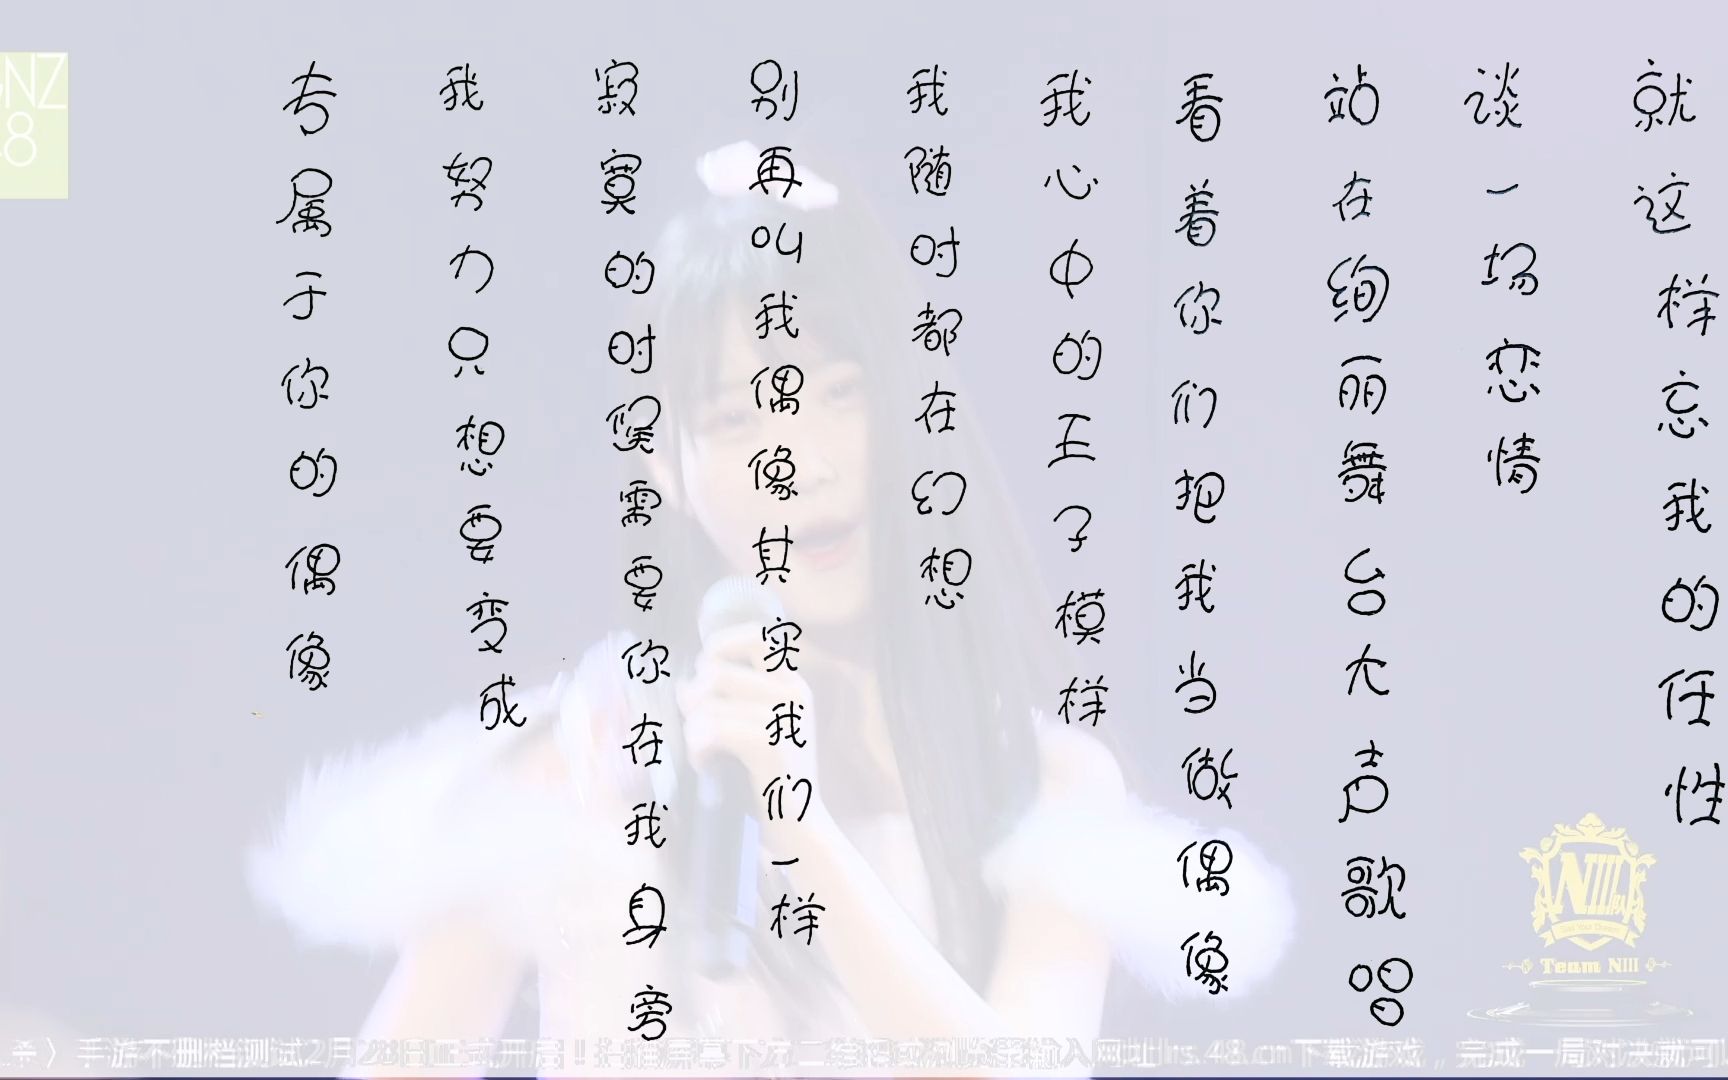 就这样忘我的任性
谈一场恋情
站在绚丽舞台大声歌唱
看着你们把我当做偶像
我心中的王子模样
我随时都在幻想
别再叫我偶像其实我们一样
寂寞的时候需要你在我身旁
我努力只想要变成
专属于你的偶像
GNZ
48
NIII
Team NIII
手游不删档测试2月28日正式开启！扫描屏幕下方二维码或浏览器输入网址hs.48.cn下载游戏，完成一局对决就可以